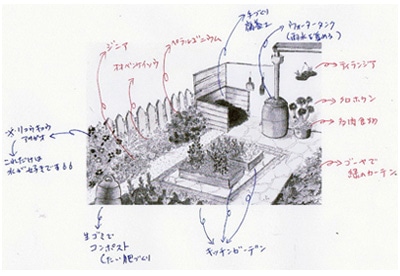 ジニア
オオベンケイソウ
ペラルゴニウム
手づくり
腐葉土
ウォータータンク
(雨水を貯める)
ティランジア
多肉食物
ゴーヤで
緑のカーテン
これだけは
水が好きです
生ゴミで
コンポスト
(たい肥づくり)
キッチンガーデン